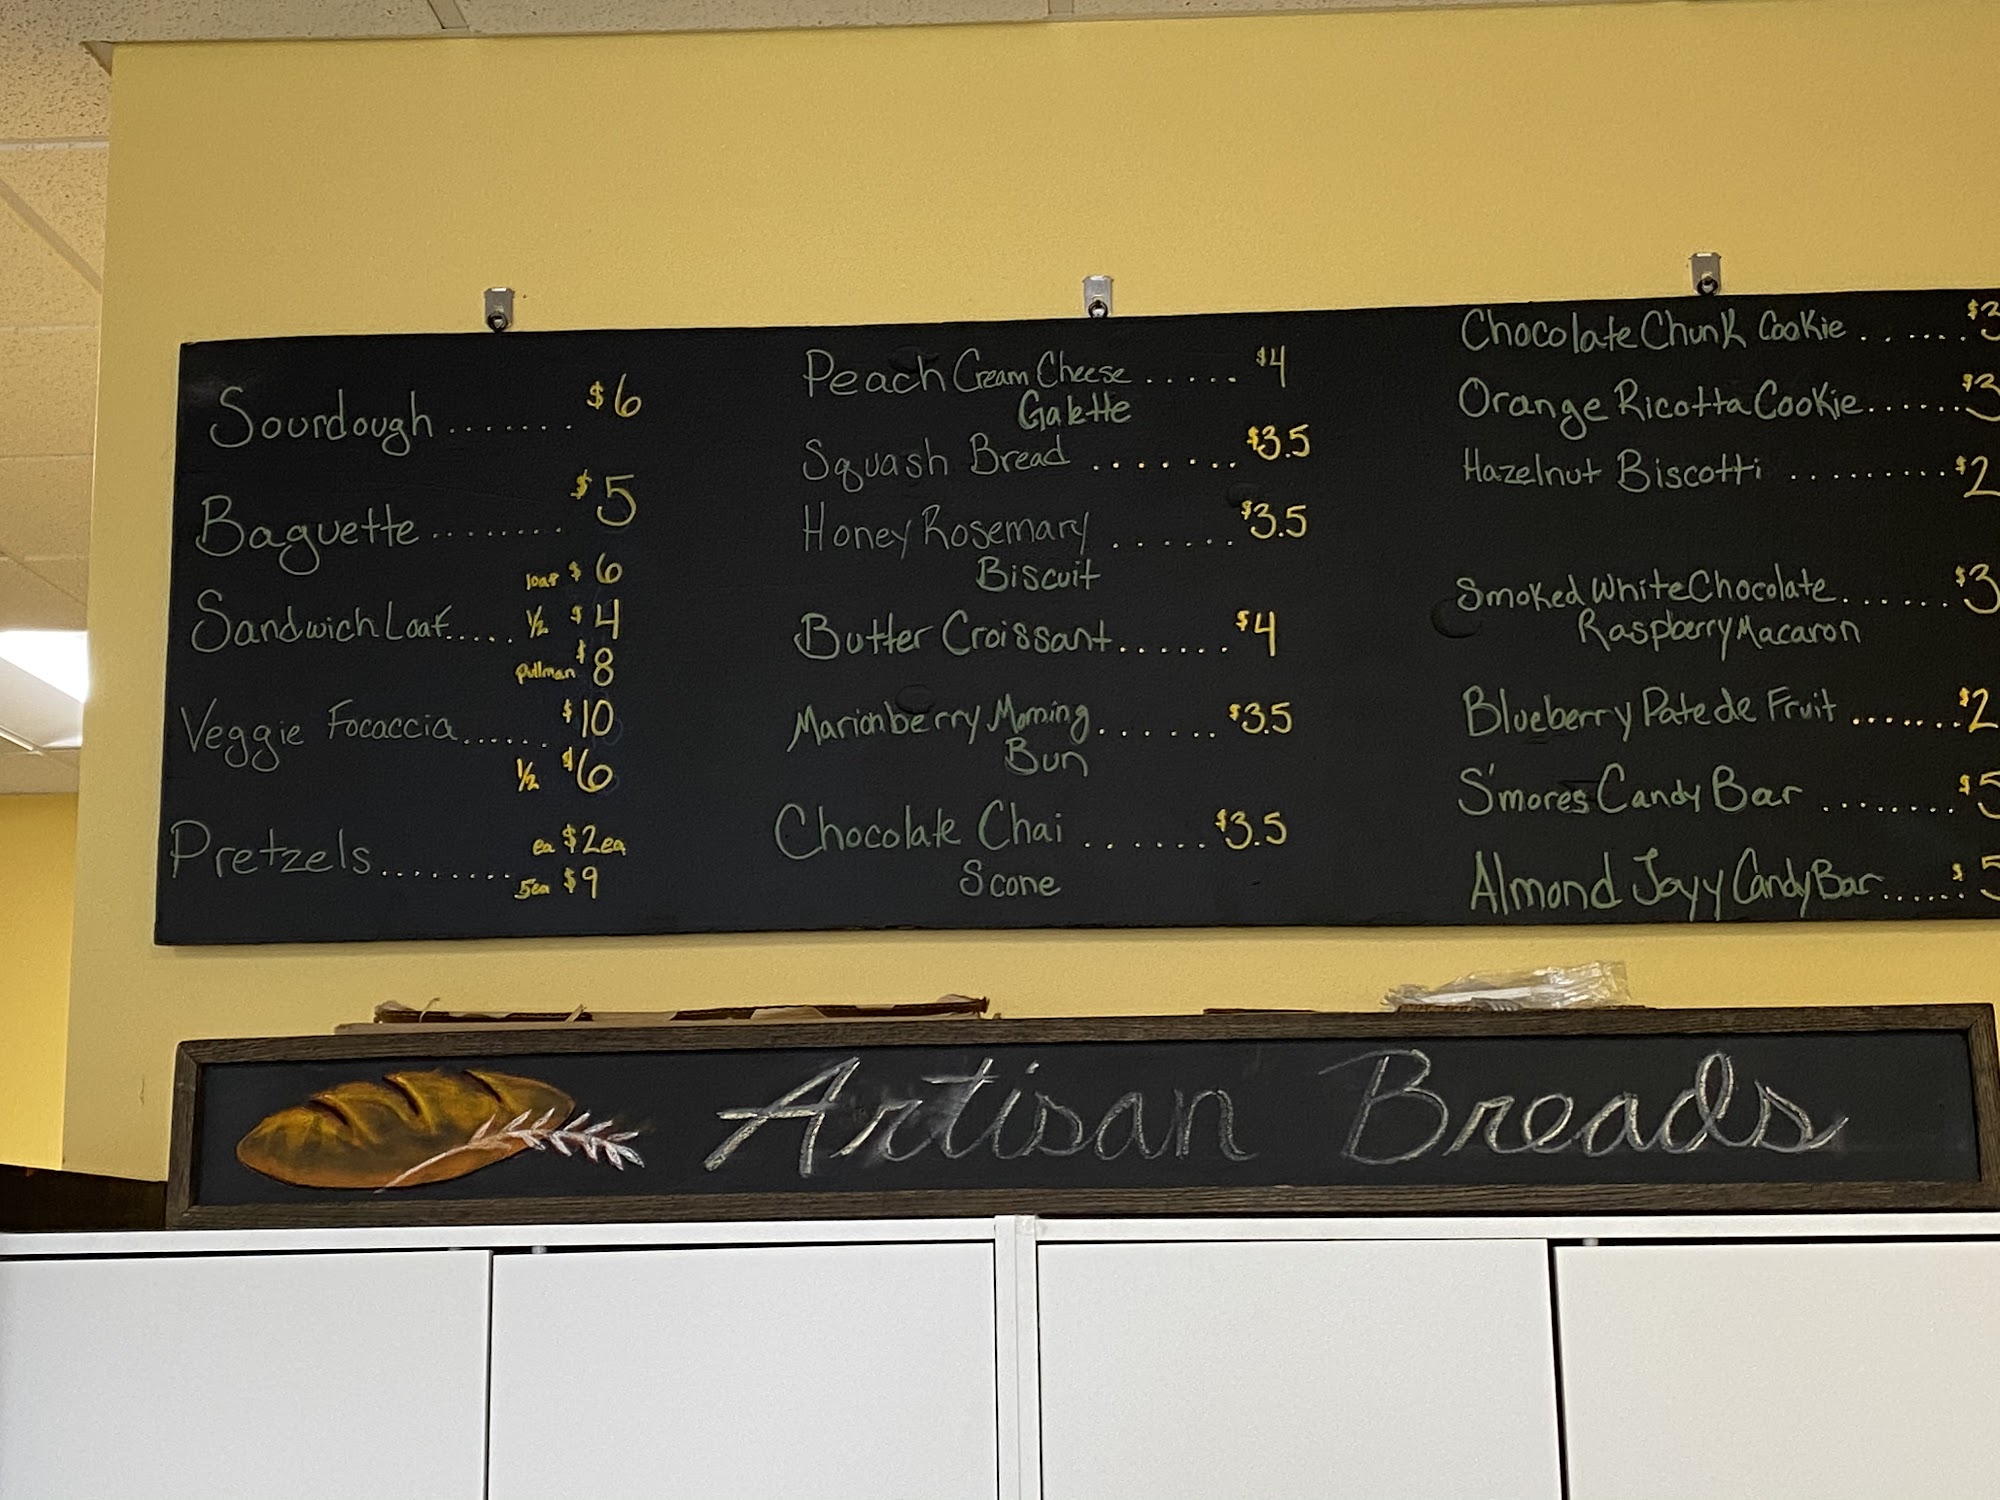 Sourdough ....... $6
Baguette ........ $5
loaf $6
Sandwich Loaf..... ½ $4
pullman $8
Veggie Focaccia...... $10
½ $6
Pretzels........ ea $2ea
5ea $9
Peach Cream Cheese ..... $4
Galette
Squash Bread ....... $3.5
Honey Rosemary ...... $3.5
Biscuit
Butter Croissant...... $4
Marionberry Morning...... $3.5
Bun
Chocolate Chai ...... $3.5
Scone
Chocolate Chunk Cookie ...... $3
Orange Ricotta Cookie...... $3
Hazelnut Biscotti ......... $2
Smoked White Chocolate...... $3
Raspberry Macaron
Blueberry Pate de Fruit ....... $2
S'mores Candy Bar ........ $5
Almond Joyy Candy Bar...... $5
Artisan Breads